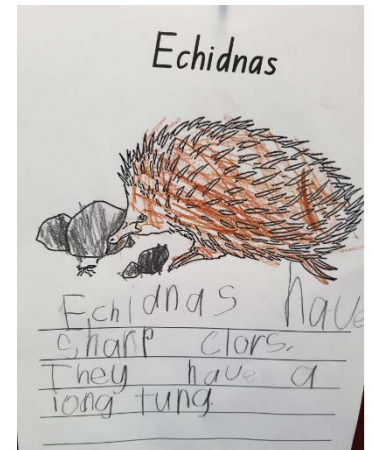 Echidnas
Echidnas have
sharp clors.
They have a
long tung